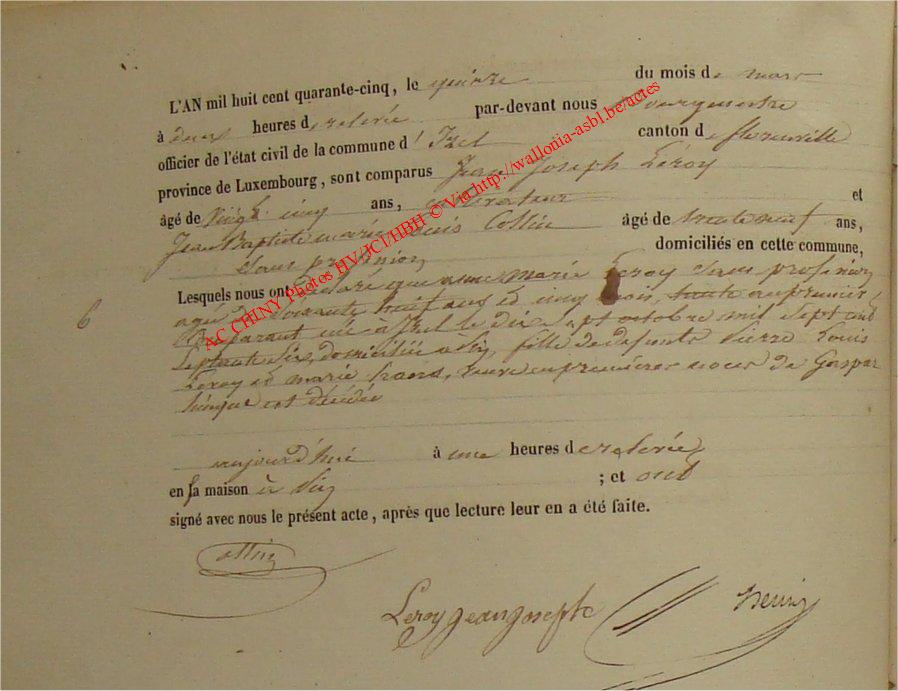 L'AN mil huit cent quarante-cinq, le quinze du mois de mars
à deux heures de relevée par-devant nous Bourgmestre
officier de l'état civil de la commune d'Izel canton de florenville
province de Luxembourg, sont comparus Jean Joseph Leroy
âgé de vingt cinq ans, et
Jean Baptiste marie Louis Collin âgé de trente neuf ans,
Sans profession domiciliés en cette commune,
Lesquels nous ont déclaré que marie Leroy Sans profession
agée de soixante huit ans et cinq mois, tante au premier
Comparant née a Izel le dix sept octobre mil Sept cent
Septante Six, domiciliée a fille de defunts Pierre Louis
Leroy et marie veuve en premières noces de Gaspar
est décédée
aujourd'hui à une heures de relevée
en sa maison à ; et ont
signé avec nous le présent acte, après que lecture leur en a été faite.
6
Collin
Leroy jean joseph
AC CHINY Photos HV/JCI/HBH © Via http://wallonia-asbl.be/actes